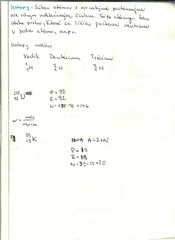 Izotopy - Súbor atómov s rovnakým protónovým
ale rôznym nukleónovým číslom. Sú to atómy toho
istého prvku, ktoré sa líšia počtom neutrónov
v jadre atómu, napr.
Izotopy vodíka
Vodík Deutérium Trícium
¹₁H ²₁H ³₁H
P = 92
E = 92
N = 238-92 = 146
³⁹₁₉K
A = Z+N
P = 19
E = 19
N = 39-19 = 20